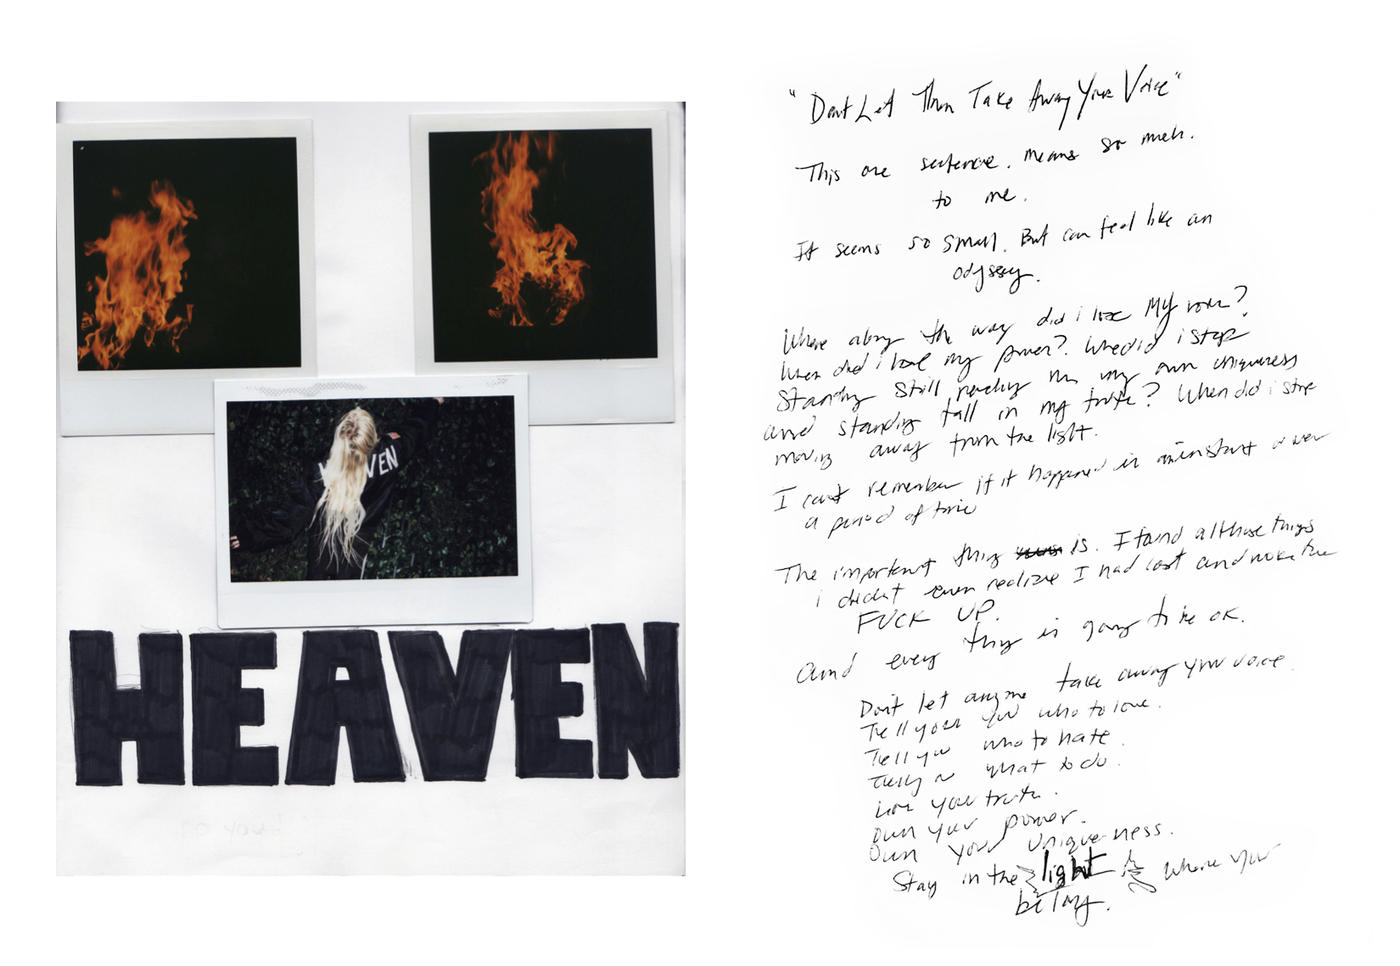 VEN
HEAVEN
"Dont Let Them Take Away Your Voice"
This one sentence. means so much.
to me.
It seems so small. But can feel like an
odyssey.
Where along the way did i lose My voice?
When did i lose my power? When did i stop
Standing Still my own uniqueness
and standing tall in my truth? When did i stop
moving away from the light.
I cant remember if it happened in an instant or over
a period of time
The important thing is. I found all those things
i didn't even realize I had lost and woke the
FUCK UP.
and every thing is going to be ok.
Dont let anyone take away your voice.
Tell you who to love.
Tell you who to hate.
Tell you what to do.
Live your truth.
Own your power.
Own your uniqueness.
Stay in the light where you
belong.